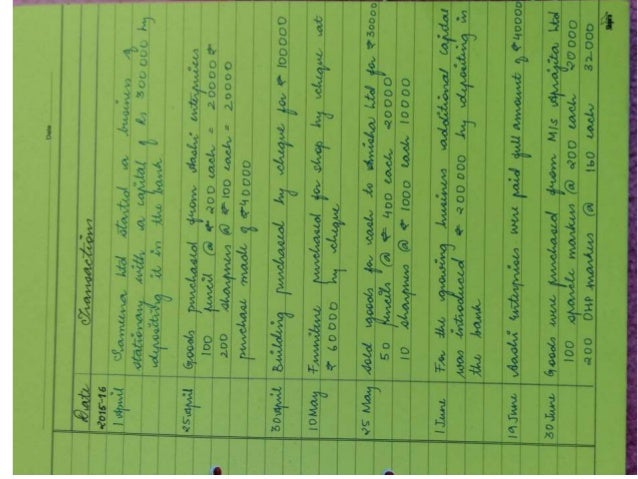 Date
Date Transactions
2015-16
1 April Sameera Ltd started a business of
stationary with a capital of Rs 300000 by
depositing it in the bank
25 April Goods purchased from Aashi enterprises
100 pencil @ ₹ 200 each = 20000 ₹
200 sharpners @ ₹ 100 each = 20000
purchase made of ₹40000
30 April Building purchased by cheque for ₹ 100000
10 May Furniture purchased for shop by cheque at
₹ 60000 by cheque
25 May Sold goods for cash to Anisha Ltd for ₹30000
50 pencils @ ₹ 400 each 20000
10 sharpners @ ₹ 1000 each 10000
1 June For the growing business additional capital
was introduced ₹ 200000 by depositing in
the bank
19 June Aashi enterprises were paid full amount of ₹40000
30 June Goods were purchased from M/s Aprajita Ltd
100 sparcle markers @ 200 each 20000
200 OHP markers @ 160 each 32000